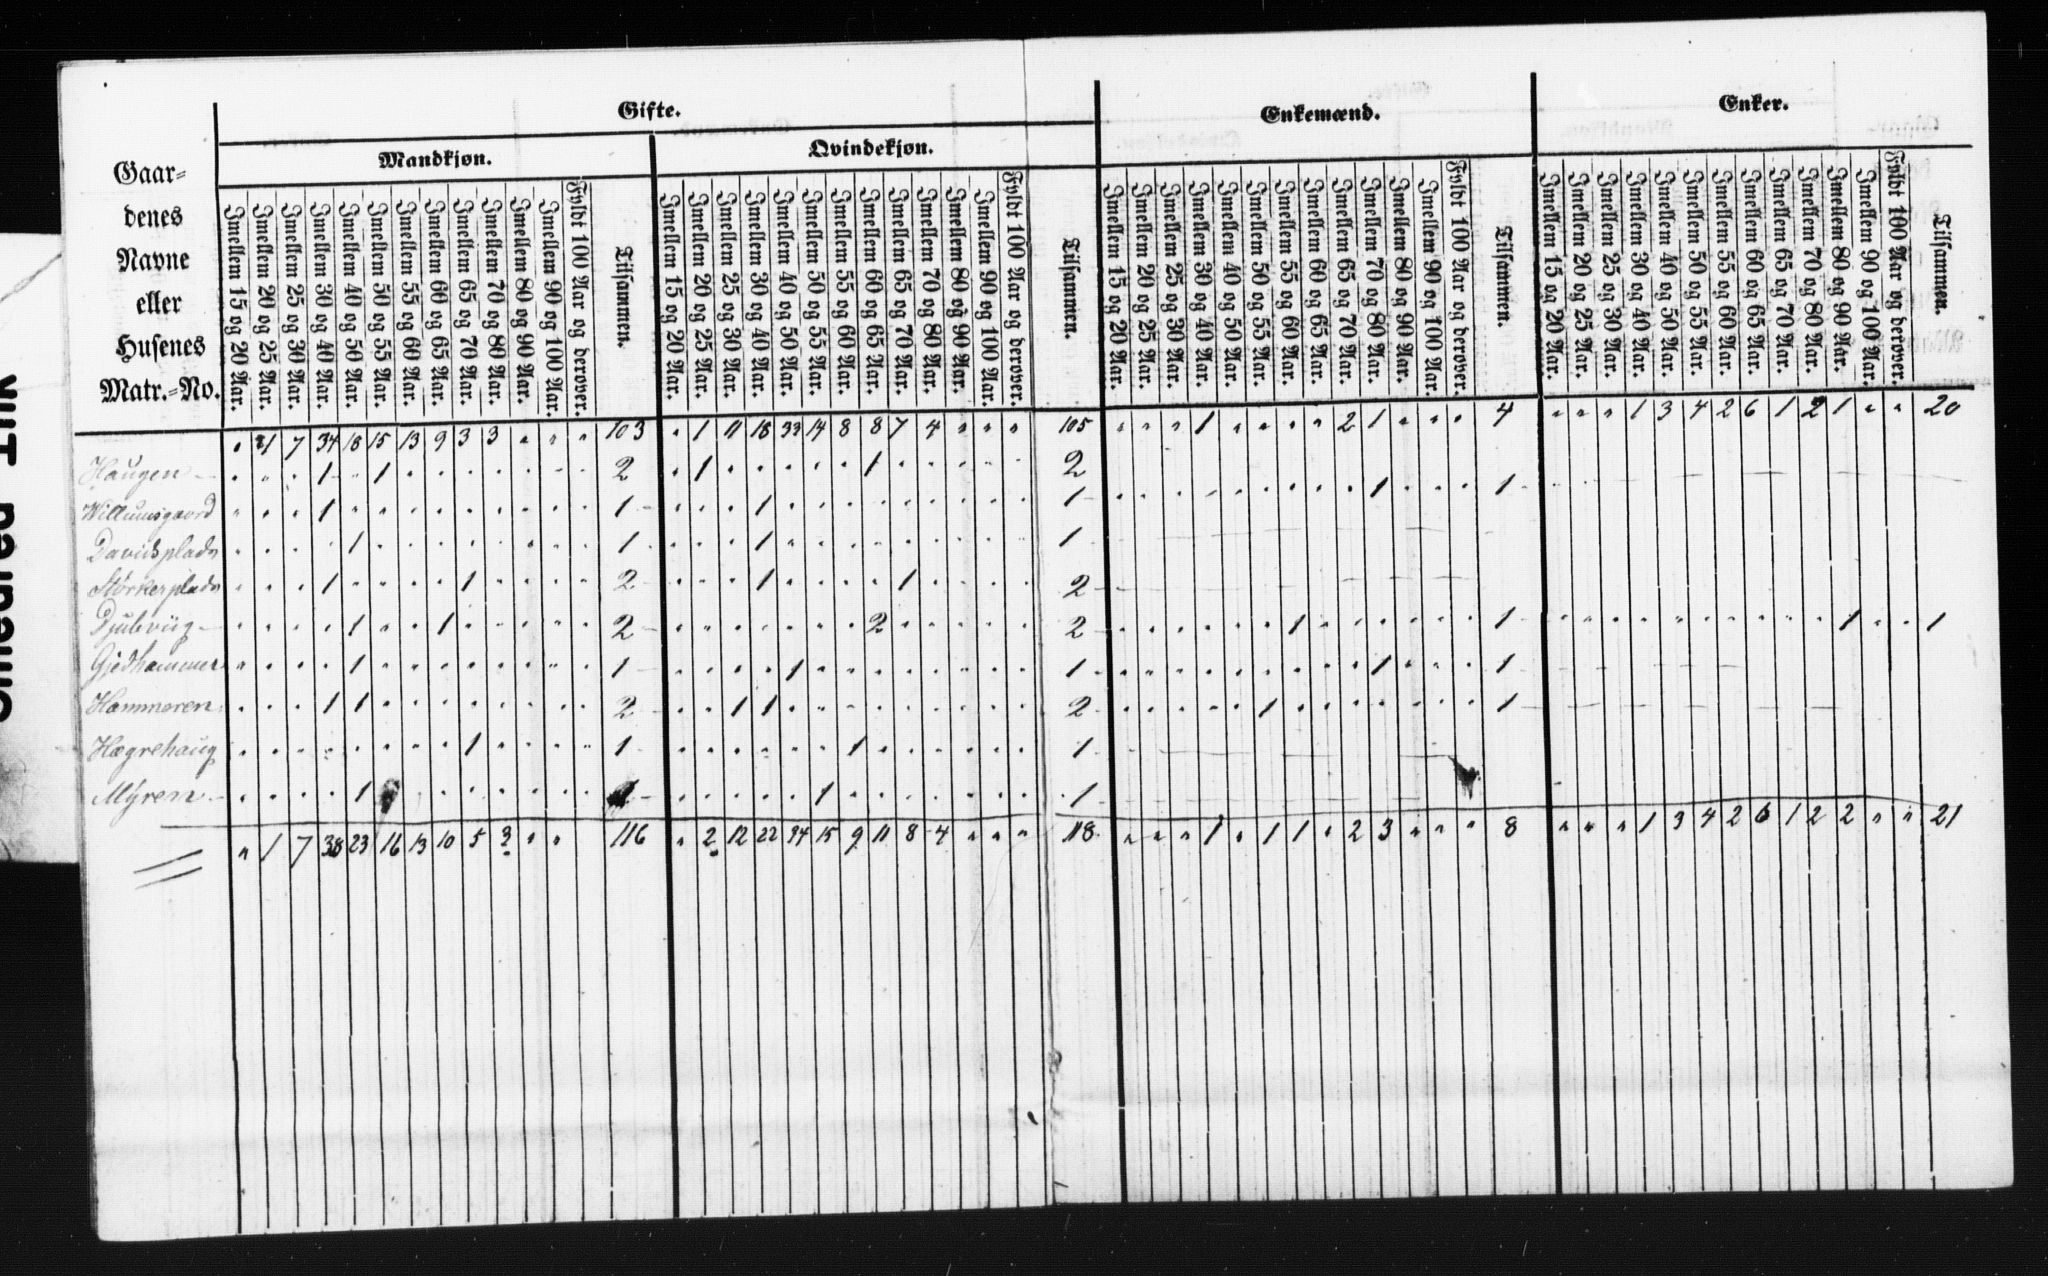 Gifte.
Enkemænd.
Enker.
Mandkjøn.
Qvindekjøn.
Gaar=
denes
Navne
eller
Husenes
Matr.=No.
Imellem 15 og 20 Aar. Imellem 20 og 25 Aar. Imellem 25 og 30 Aar. Imellem 30 og 40 Aar. Imellem 40 og 50 Aar. Imellem 50 og 55 Aar. Imellem 55 og 60 Aar. Imellem 60 og 65 Aar. Imellem 65 og 70 Aar. Imellem 70 og 80 Aar. Imellem 80 og 90 Aar. Imellem 90 og 100 Aar. Fyldt 100 Aar og derover. Tilsammen.
Imellem 15 og 20 Aar. Imellem 20 og 25 Aar. Imellem 25 og 30 Aar. Imellem 30 og 40 Aar. Imellem 40 og 50 Aar. Imellem 50 og 55 Aar. Imellem 55 og 60 Aar. Imellem 60 og 65 Aar. Imellem 65 og 70 Aar. Imellem 70 og 80 Aar. Imellem 80 og 90 Aar. Imellem 90 og 100 Aar. Fyldt 100 Aar og derover. Tilsammen.
Imellem 15 og 20 Aar. Imellem 20 og 25 Aar. Imellem 25 og 30 Aar. Imellem 30 og 40 Aar. Imellem 40 og 50 Aar. Imellem 50 og 55 Aar. Imellem 55 og 60 Aar. Imellem 60 og 65 Aar. Imellem 65 og 70 Aar. Imellem 70 og 80 Aar. Imellem 80 og 90 Aar. Imellem 90 og 100 Aar. Fyldt 100 Aar og derover. Tilsammen.
Imellem 15 og 20 Aar. Imellem 20 og 25 Aar. Imellem 25 og 30 Aar. Imellem 30 og 40 Aar. Imellem 40 og 50 Aar. Imellem 50 og 55 Aar. Imellem 55 og 60 Aar. Imellem 60 og 65 Aar. Imellem 65 og 70 Aar. Imellem 70 og 80 Aar. Imellem 80 og 90 Aar. Imellem 90 og 100 Aar. Fyldt 100 Aar og derover. Tilsammen.
" 1 7 34 18 15 13 9 3 3 " " " 103 " 1 11 18 33 14 8 8 7 4 " " " 105 " " " 1 " " " " 2 1 " " " 4 " " " 1 3 4 2 6 1 2 1 " " 20
Haugen " " " 1 " 1 " " " " " " " 2 " 1 " " " " " 1 " " " " " 2
Willumsgaard " " " 1 " " " " " " " " " 1 " " " 1 " " " " " " " " " 1 " " " " " " " " " 1 " " " 1
Davidsplads " " " " 1 " " " " " " " " 1 " " " 1 " " " " " " " " " 1
Størkersplads " " " 1 " " " " 1 " " " " 2 " " " 1 " " " " 1 " " " " 2
Djubviig " " " " 1 " " 1 " " " " " 2 " " " " " " " 2 " " " " " 2 " " " " " " 1 " " " " " " 1 " " " " " " " " " " 1 " " 1
Gjedhammer " " " " 1 " " " " " " " " 1 " " " " 1 " " " " " " " " 1 " " " " " " " " " 1 " " " 1
Hammeren " " " 1 1 " " " " " " " " 2 " " 1 1 " " " " " " " " " 2 " " " " " 1 " " " " " " " 1
Hegrehaug " " " " " " " " 1 " " " " 1 " " " " " " 1 " " " " " " 1
Myren " " " " 1 " " " " " " " 1 " " " " " 1 " " " " " " " 1
" 1 7 38 23 16 13 10 5 3 " " 116 " 2 12 22 34 15 9 11 8 4 " " " 118 " " " 1 " 1 1 " 2 3 " " " 8 " " " 1 3 4 2 6 1 2 2 " " 21